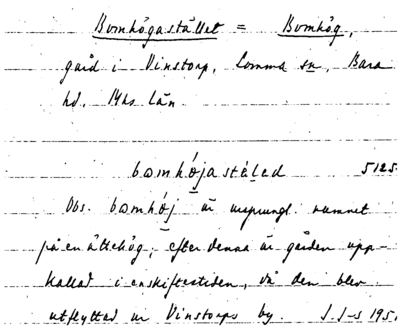 Bomhögastället = Bomhög,
gård i Vinstorp, Lomma sn, Bara
hd, Mhs län.
bomhǿjastáled 5125.
Obs. bomhǿj är ursprungl. namnet
på en ättehög; efter denna är gården upp-
kallad i enskiftestiden, då den blev
utflyttad ur Vinstorps by. J. J-s 195